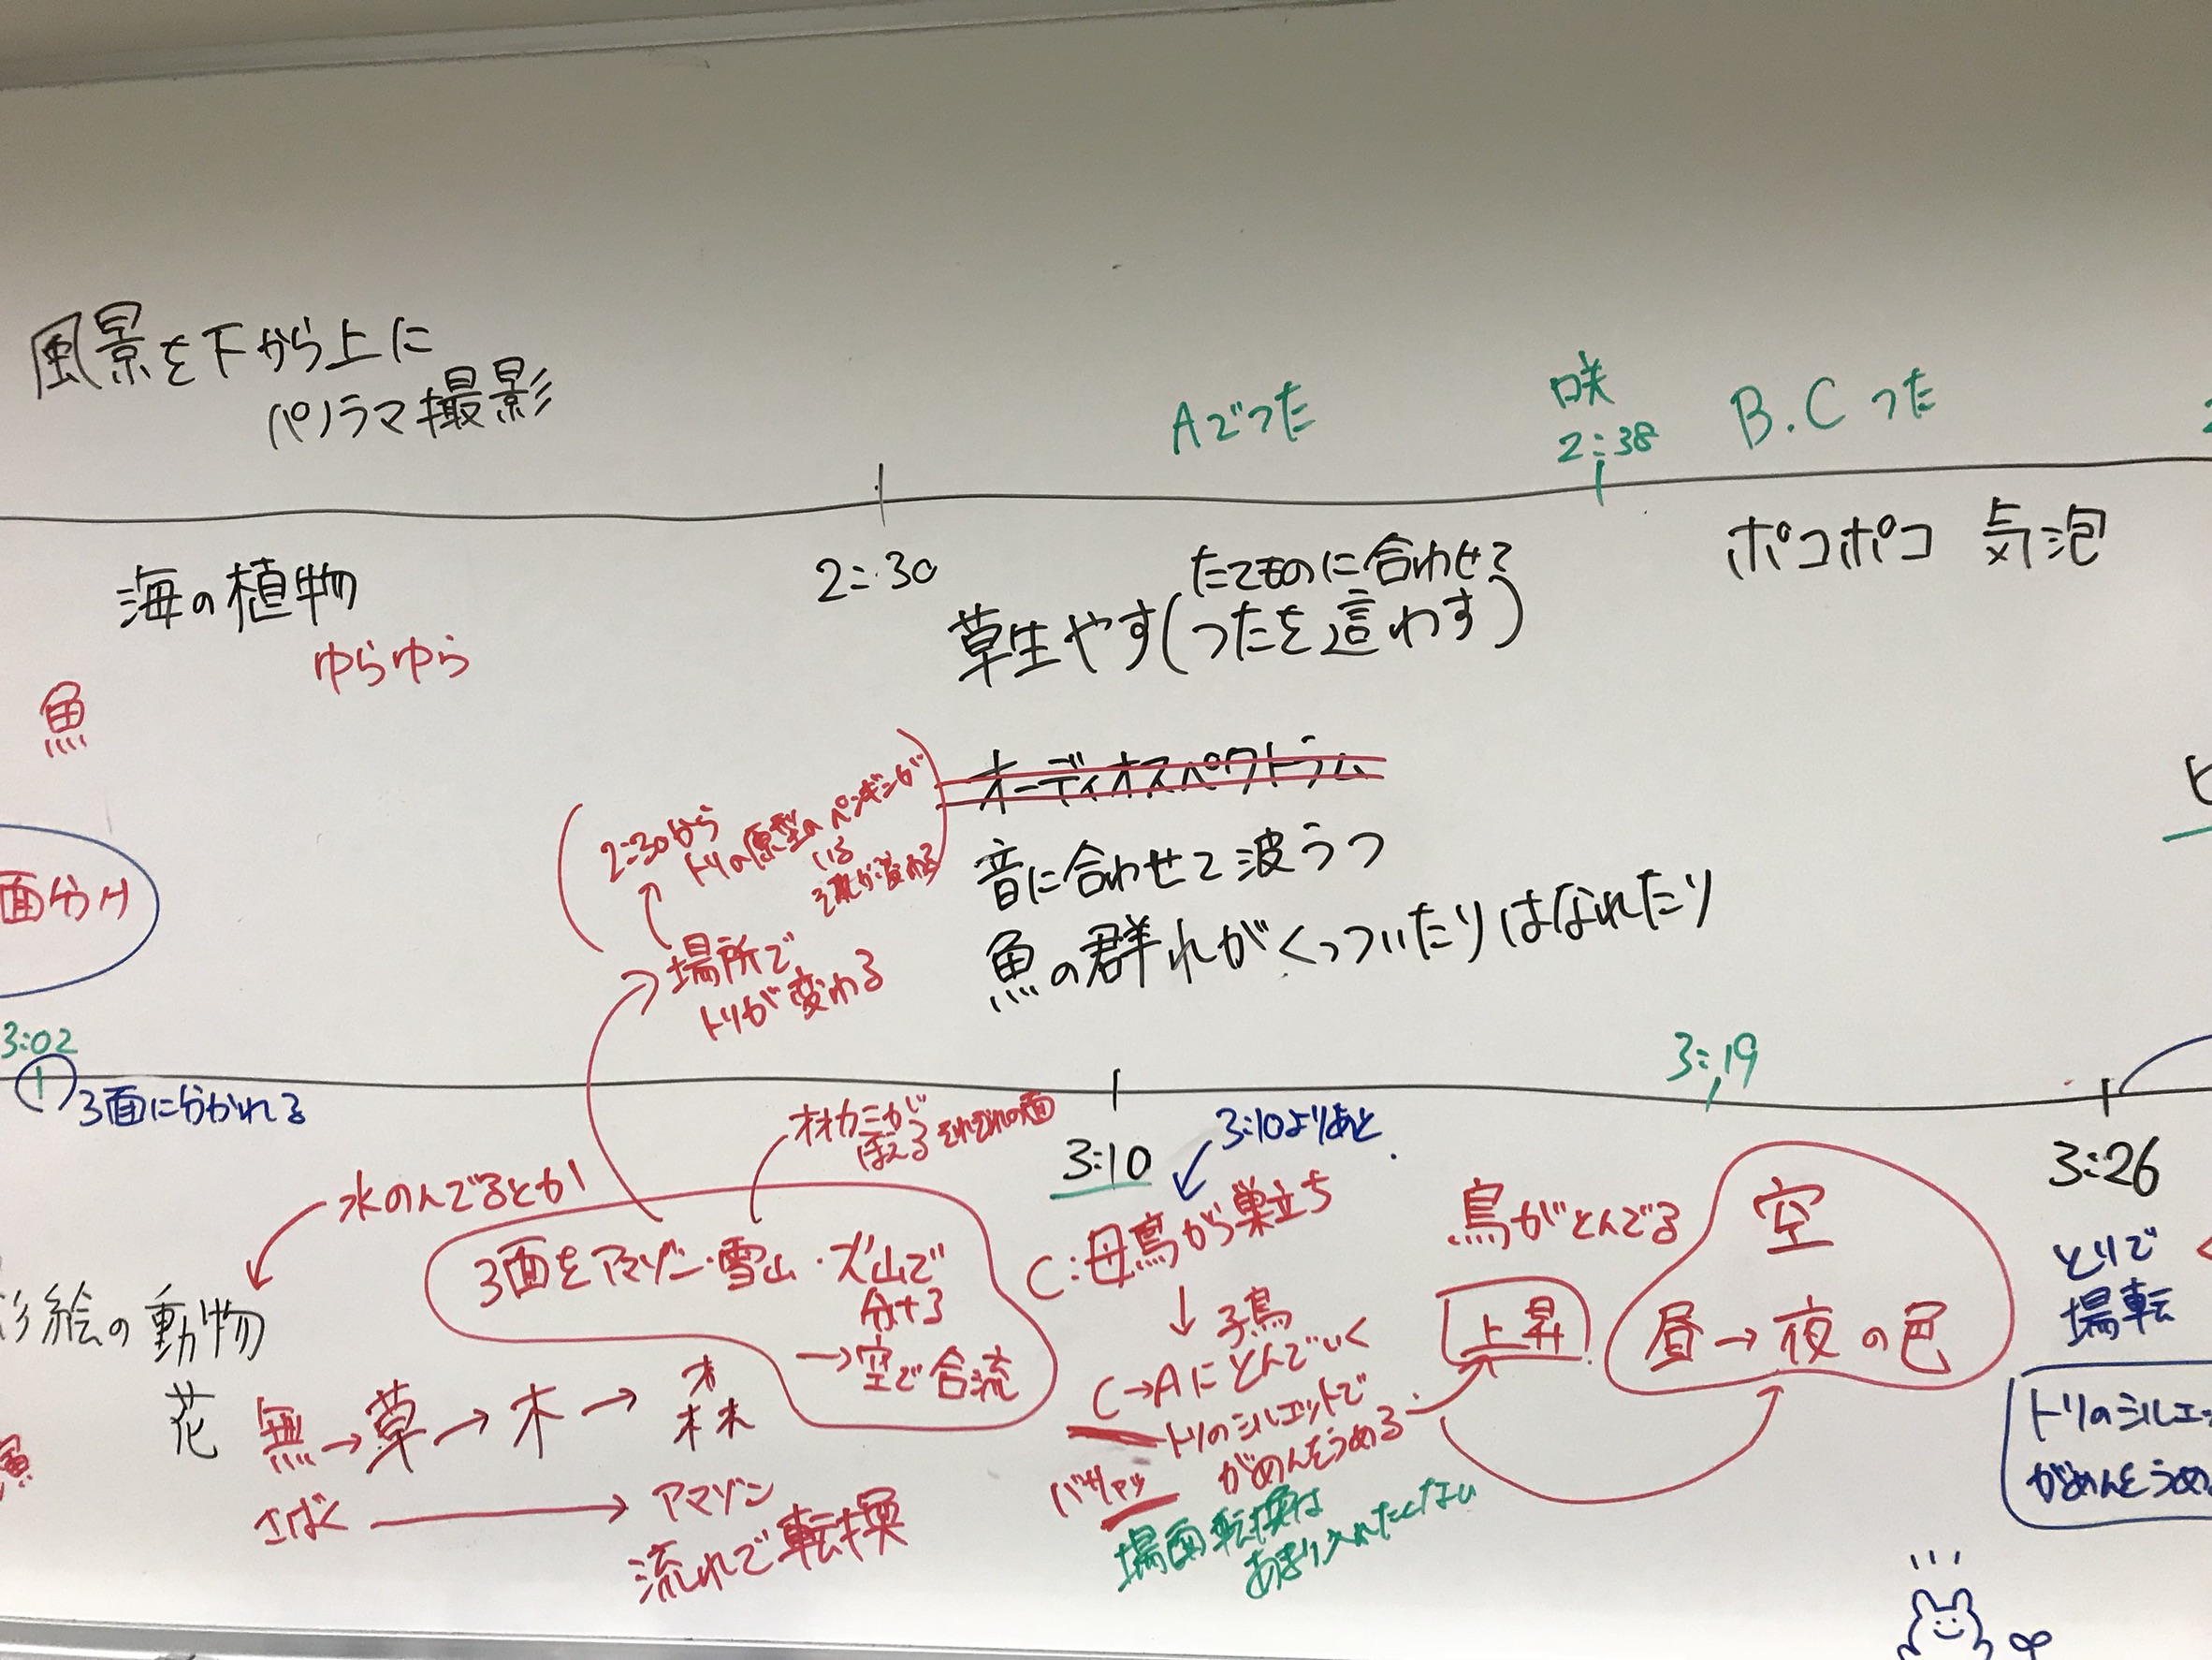 風景を下から上に
パノラマ撮影
Aでつた
咲
2:38
B.C つた
海の植物
ゆらゆら
魚
2:30
たてものに合わせて
草生やす(つたを這わす)
ポコポコ 気泡
オーディオスペクトラム
音に合わせて波うつ
魚の群れがくっついたりはなれたり
2:30から
トリの原型のペンギンが
いる
場所で
トリが変わる
面分け
3:02
3面に分かれる
3:10
3:10よりあと
3:19
3:26
オオカミが
ほえる それぞれの面
水のんでるとか
3面をアマゾン・雪山・ズ山で
分ける
→空で合流
影絵の動物
花
無→草→木→森
さばく → アマゾン
流れで転換
C:母鳥が巣立ち
↓ 子鳥
C→Aにとんでいく
トリのシルエットで
がめんをうめる
バサァッ
場面転換は
あまり入れたくない
鳥がとんでる
上昇
空
昼→夜の色
とりで
場転
トリのシルエッ
がめんをうめ